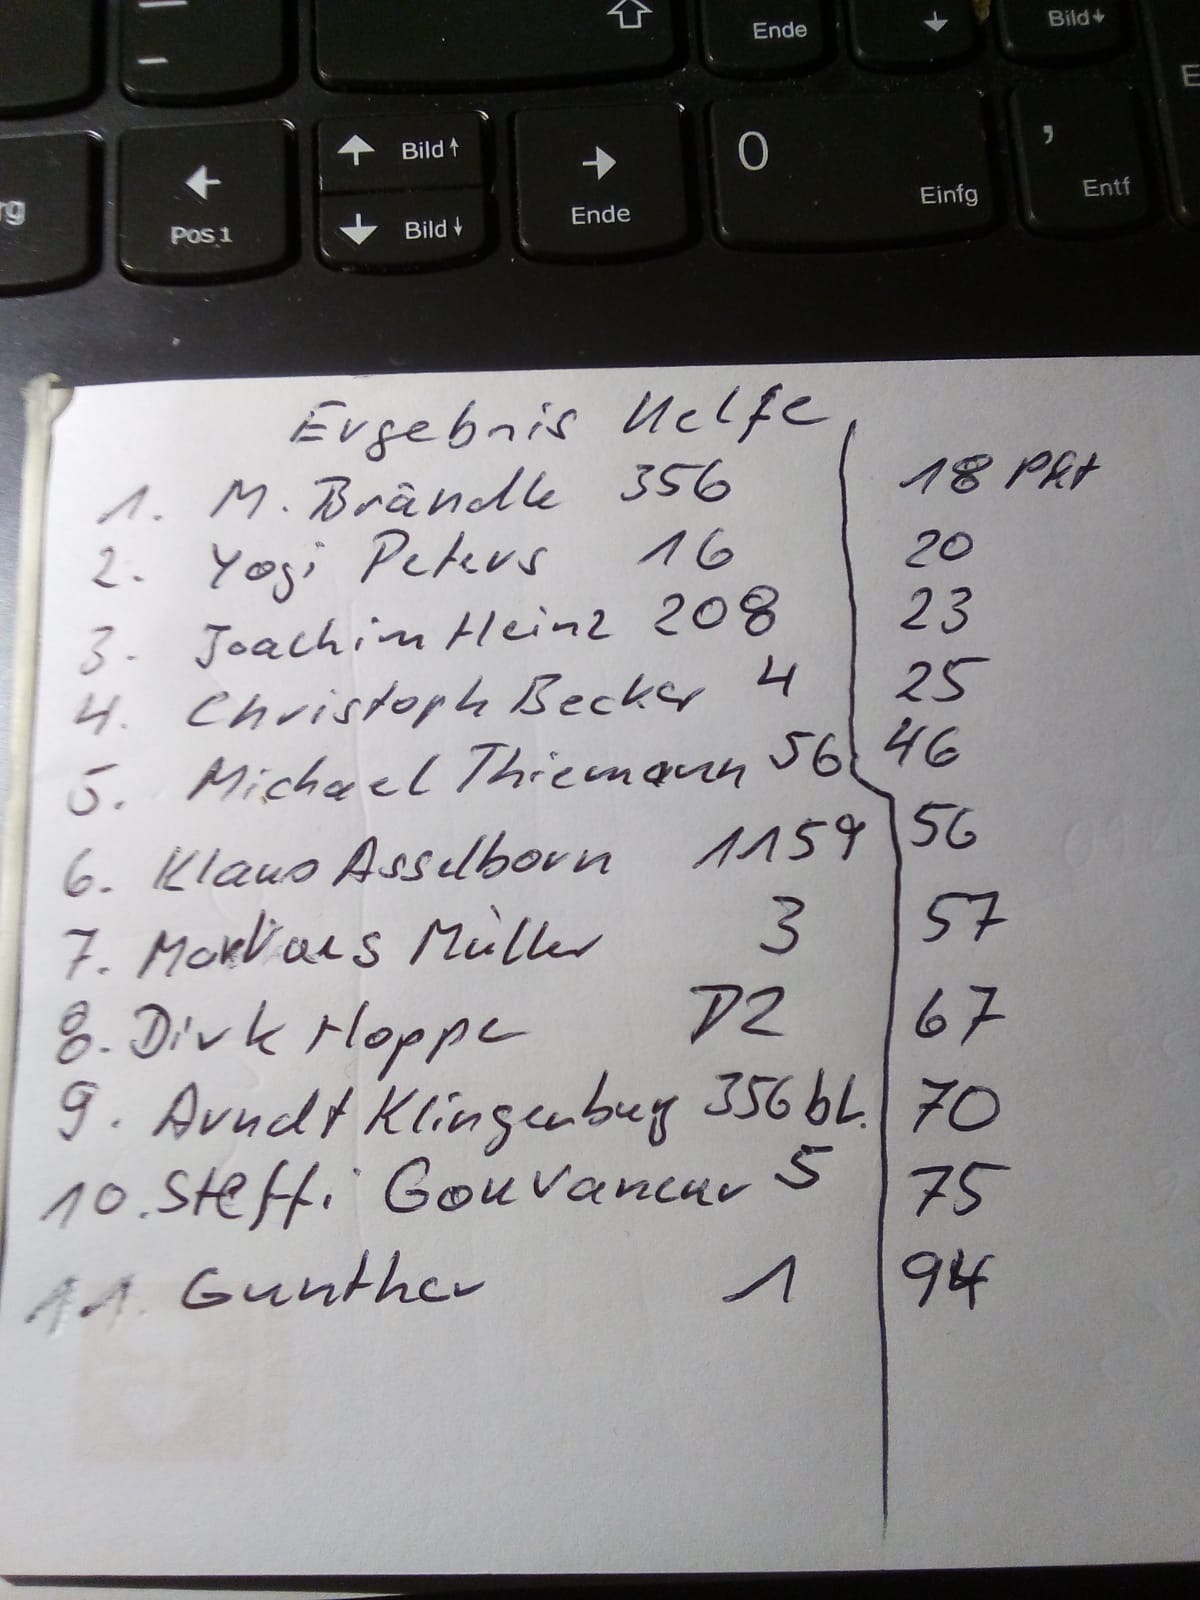 Ende
Bild↓
←
Pos 1
↑ Bild↑
↓ Bild↓
→
Ende
0
Einfg
,
Entf
Ergebnis Helfe
1. M. Brändle 356 18 Pkt
2. Yogi Peters 16 20
3. Joachim Heinz 208 23
4. Christoph Becker 4 25
5. Michael Thiemann 56 46
6. Klaus Asselborn 1159 56
7. Müller 3 57
8. Dirk Hoppe D2 67
9. Arndt Klingenburg 356 bl. 70
10. Steffi Gouvaneur 5 75
11. Gunther 1 94